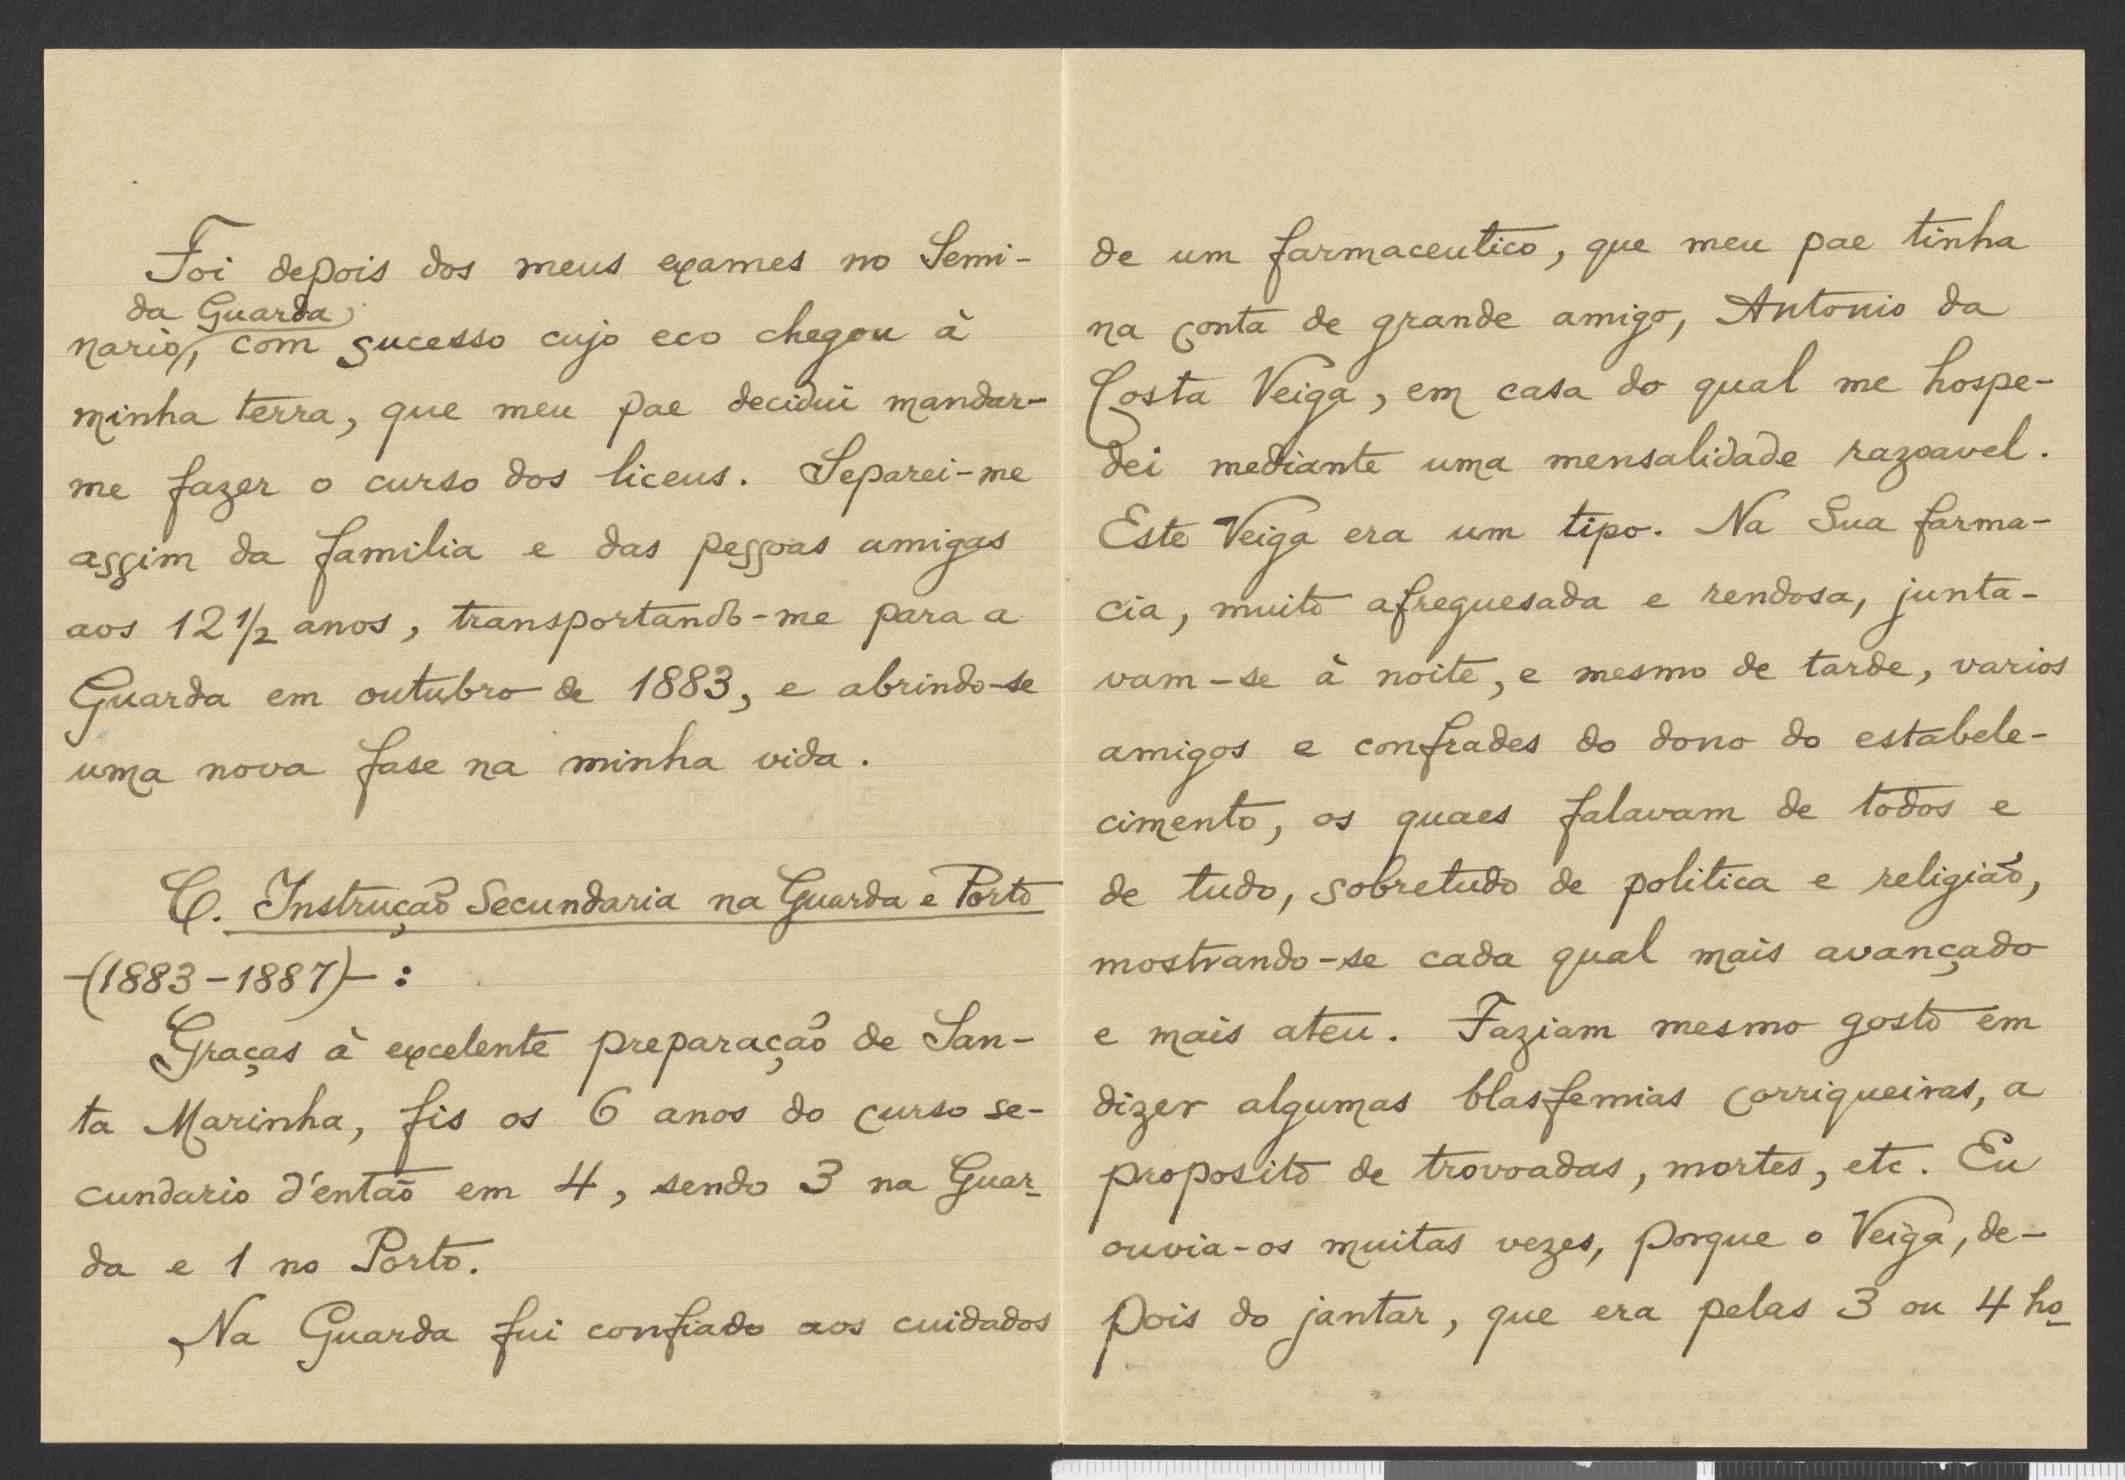 Foi depois dos meus exames no Semi-
da Guarda
nario, com sucesso cujo eco chegou à
minha terra, que meu pae decidui mandar-
me fazer o curso dos liceus. Separei-me
assim da familia e das pessoas amigas
aos 12 1/2 anos, transportando-me para a
Guarda em outubro de 1883, e abrindo-se
uma nova fase na minha vida.
C. Instrução Secundaria na Guarda e Porto
-(1883-1887)-:
Graças à excelente preparação de San-
ta Marinha, fis os 6 anos do curso se-
cundario d'então em 4, sendo 3 na Guar-
da e 1 no Porto.
Na Guarda fui confiado aos cuidados
de um farmaceutico, que meu pae tinha
na conta de grande amigo, Antonio da
Costa Veiga, em casa do qual me hospe-
dei mediante uma mensalidade razoavel.
Este Veiga era um tipo. Na Sua farma-
cia, muito afreguesada e rendosa, junta-
vam-se à noite, e mesmo de tarde, varios
amigos e confrades do dono do estabele-
cimento, os quaes falavam de todos e
de tudo, sobretudo de politica e religião,
mostrando-se cada qual mais avançado
e mais ateu. Faziam mesmo gosto em
dizer algumas blasfemias corriqueiras, a
proposito de trovoadas, mortes, etc. Eu
ouvia-os muitas vezes, porque o Veiga, de-
pois do jantar, que era pelas 3 ou 4 ho-